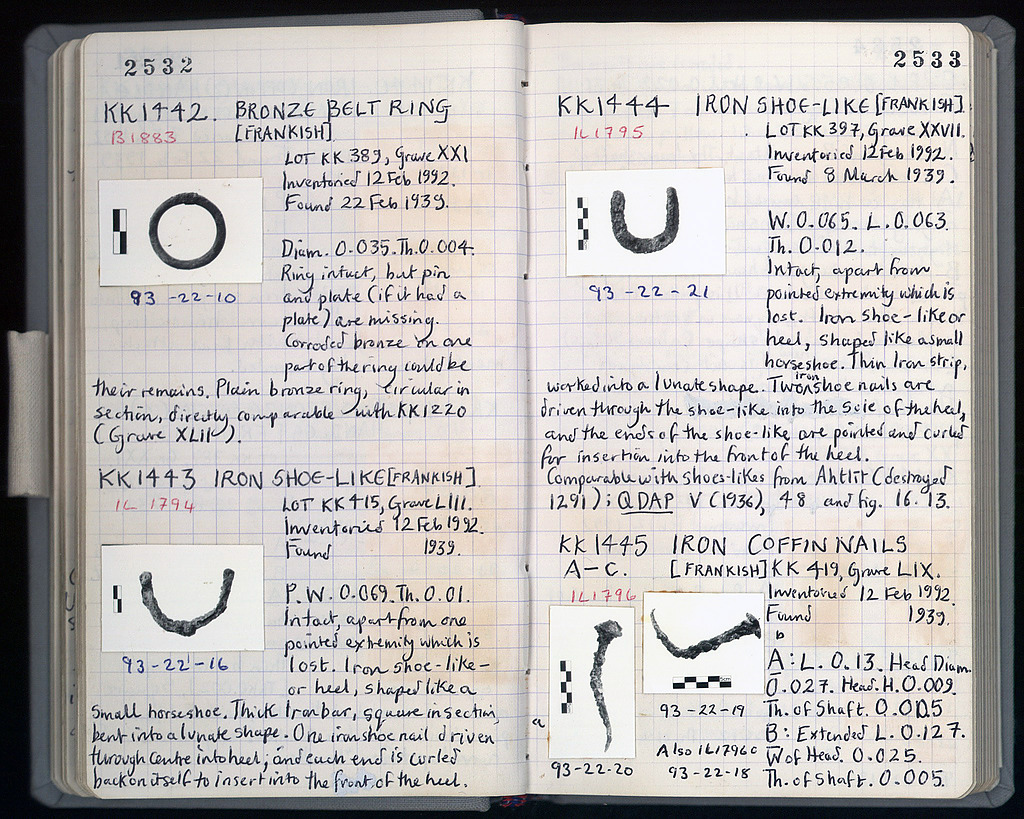 2532
KK1442. BRONZE BELT RING
B1883 [FRANKISH]
LOT KK 389, Grave XXI
Inventoried 12 Feb 1992.
Found 22 Feb 1939.
Diam. 0.035. Th. 0.004.
Ring intact, but pin
and plate (if it had a
plate) are missing.
Corroded bronze on one
part of the ring could be
93-22-10
their remains. Plain bronze ring, circular in
section, directly comparable with KK1220
(Grave XLII).
KK1443 IRON SHOE-LIKE [FRANKISH]
IL 1794
LOT KK 415, Grave LIII.
Inventoried 12 Feb 1992.
Found 1939.
P.W. 0.069. Th. 0.01.
Intact, apart from one
pointed extremity which is
lost. Iron shoe-like-
or heel, shaped like a
93-22-16
small horseshoe. Thick Iron bar, square in section,
bent into a lunate shape. One iron shoe nail driven
through centre into heel; and each end is curled
back on itself to insert into the front of the heel.
2533
KK1444 IRON SHOE-LIKE [FRANKISH]
IL1795
LOT KK 397, Grave XXVII.
Inventoried 12 Feb 1992.
Found 8 March 1939.
W. 0.065. L. 0.063.
Th. 0.012.
Intact, apart from
pointed extremity which is
lost. Iron shoe-like or
heel, shaped like a small
horseshoe. Thin Iron strip,
93-22-21
worked into a lunate shape. Two iron shoe nails are
driven through the shoe-like into the sole of the heel,
and the ends of the shoe-like are pointed and curled
for insertion into the front of the heel.
Comparable with shoes-likes from Ahtlit (destroyed
1291); QDAP V (1936), 48 and fig. 16. 13.
KK1445 IRON COFFIN NAILS
A-C. [FRANKISH] KK 419, Grave LIX.
IL1796
Inventoried 12 Feb 1992
Found 1939.
b
A: L. 0.13. Head Diam.
0.027. Head. H. 0.009.
Th. of Shaft. 0.005
B: Extended L. 0.127.
W of Head. 0.025.
Th. of Shaft. 0.005.
93-22-19
a
Also IL1796c
93-22-20
93-22-18